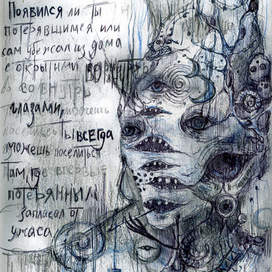 Появился ли ты
потерявшимся или
сам убежал из дома
с открытыми
во внутрь
глазами,
ты всегда
можешь поселиться
Там, где впервые
потерянный
заплакал от
ужаса